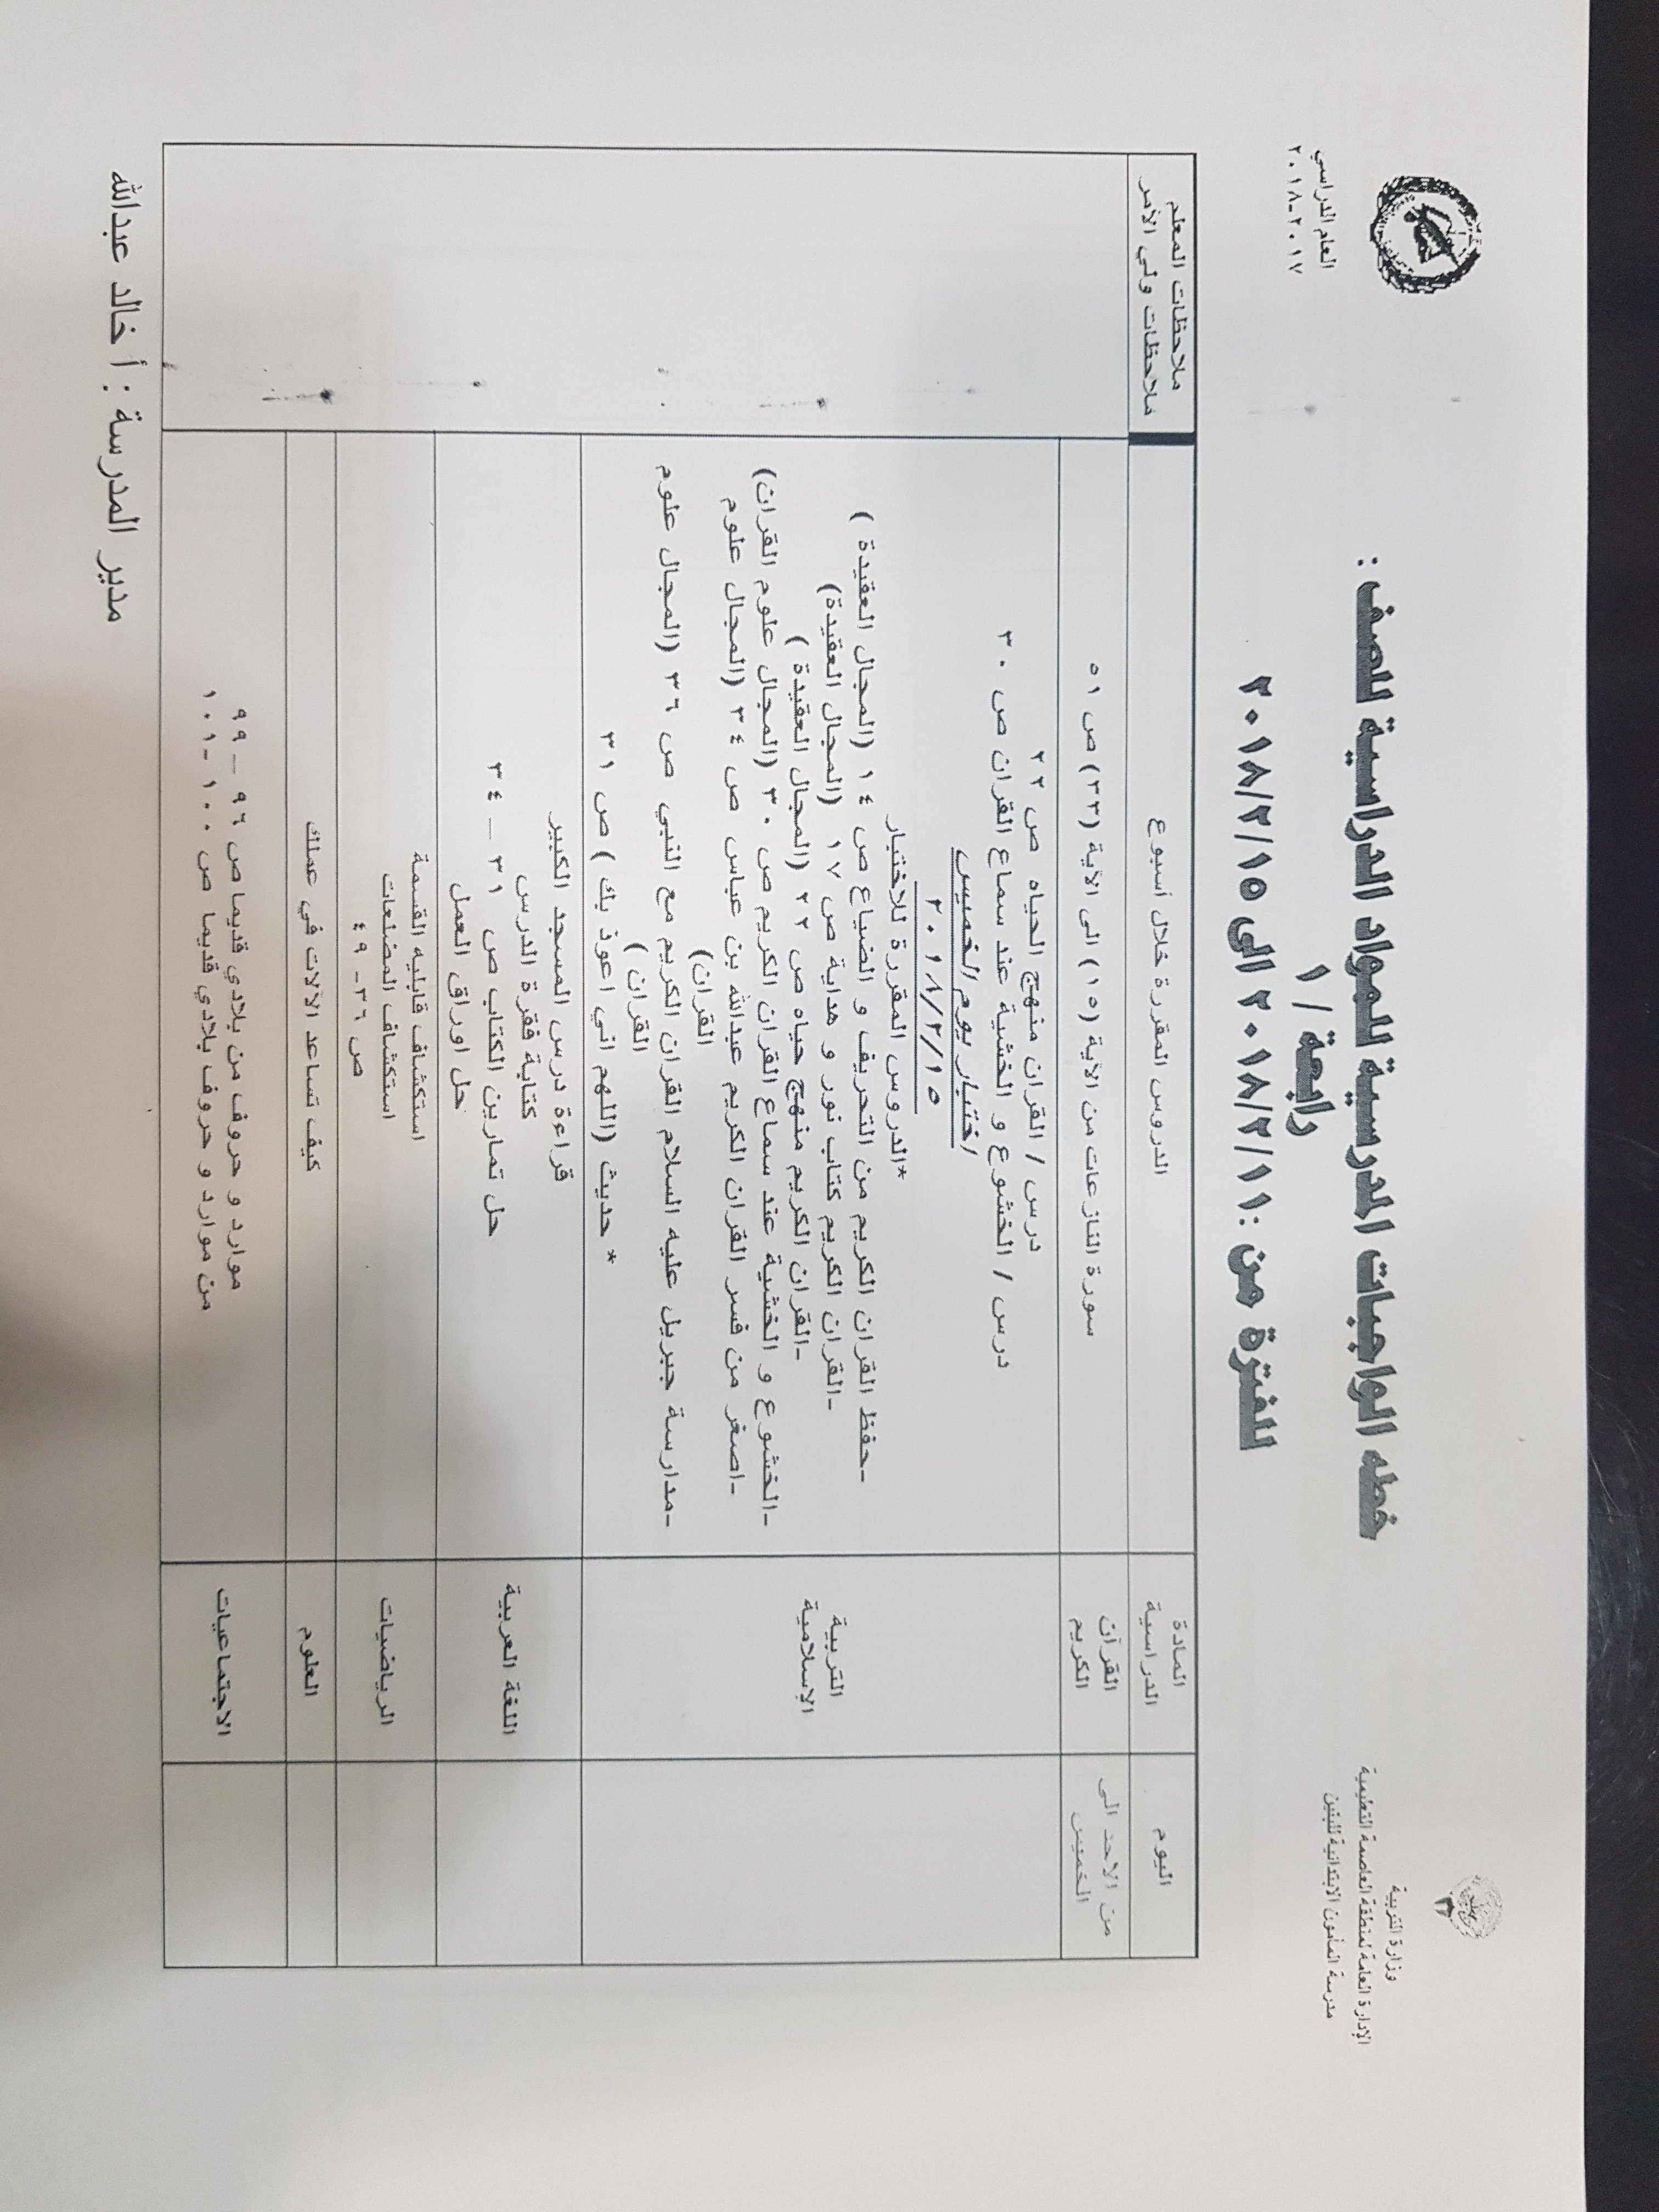 وزارة التربية
الإدارة العامة لمنطقة العاصمة التعليمية
مدرسة المأمون الابتدائية للبنين
العام الدراسي
٢٠١٧-٢٠١٨
خطه الواجبات المدرسية للمواد الدراسية للصف :
رابعة / ١
للفترة من :٢٠١٨/٢/١١ الى ٢٠١٨/٢/١٥
اليوم
المادة
الدراسية
الدروس المقررة خلال أسبوع
ملاحظات المعلم
ملاحظات ولي الأمر
من الاحد الى
الخميس
القرآن
الكريم
سورة النازعات من الآية (١٥) الى الآية (٣٣) ص ٥١
التربية
الإسلامية
درس / القران منهج الحياه ص ٢٢
درس / الخشوع و الخشية عند سماع القران ص ٣٠
اختبار يوم الخميس
٢٠١٨/٢/١٥
*الدروس المقررة للاختبار
-حفظ القران الكريم من التحريف و الضياع ص ١٤ (المجال العقيدة )
-القران الكريم كتاب نور و هداية ص ١٧ (المجال العقيدة)
-القران الكريم منهج حياه ص ٢٢ (المجال العقيدة )
-الخشوع و الخشية عند سماع القران الكريم ص ٣٠ (المجال علوم القران)
-اصغر من فسر القران الكريم عبدالله بن عباس ص ٣٤ (المجال علوم
القران)
-مدارسة جبريل عليه السلام القران الكريم مع النبي ص ٣٦ (المجال علوم
القران )
* حديث (اللهم اني اعوذ بك ) ص ٣١
اللغة العربية
قراءة درس المسجد الكبير
كتابة فقرة الدرس
حل تمارين الكتاب ص ٣١ – ٣٤
حل اوراق العمل
الرياضيات
استكشاف قابليه القسمة
استكشاف المضلعات
ص ٣٦- ٤٩
العلوم
كيف تساعد الآلات في عملك
الاجتماعيات
موارد و حروف من بلادي قديما ص ٩٦ – ٩٩
من موارد و حروف بلادي قديما ص ١٠٠ -١٠١
مدير المدرسة : أ خالد عبدالله